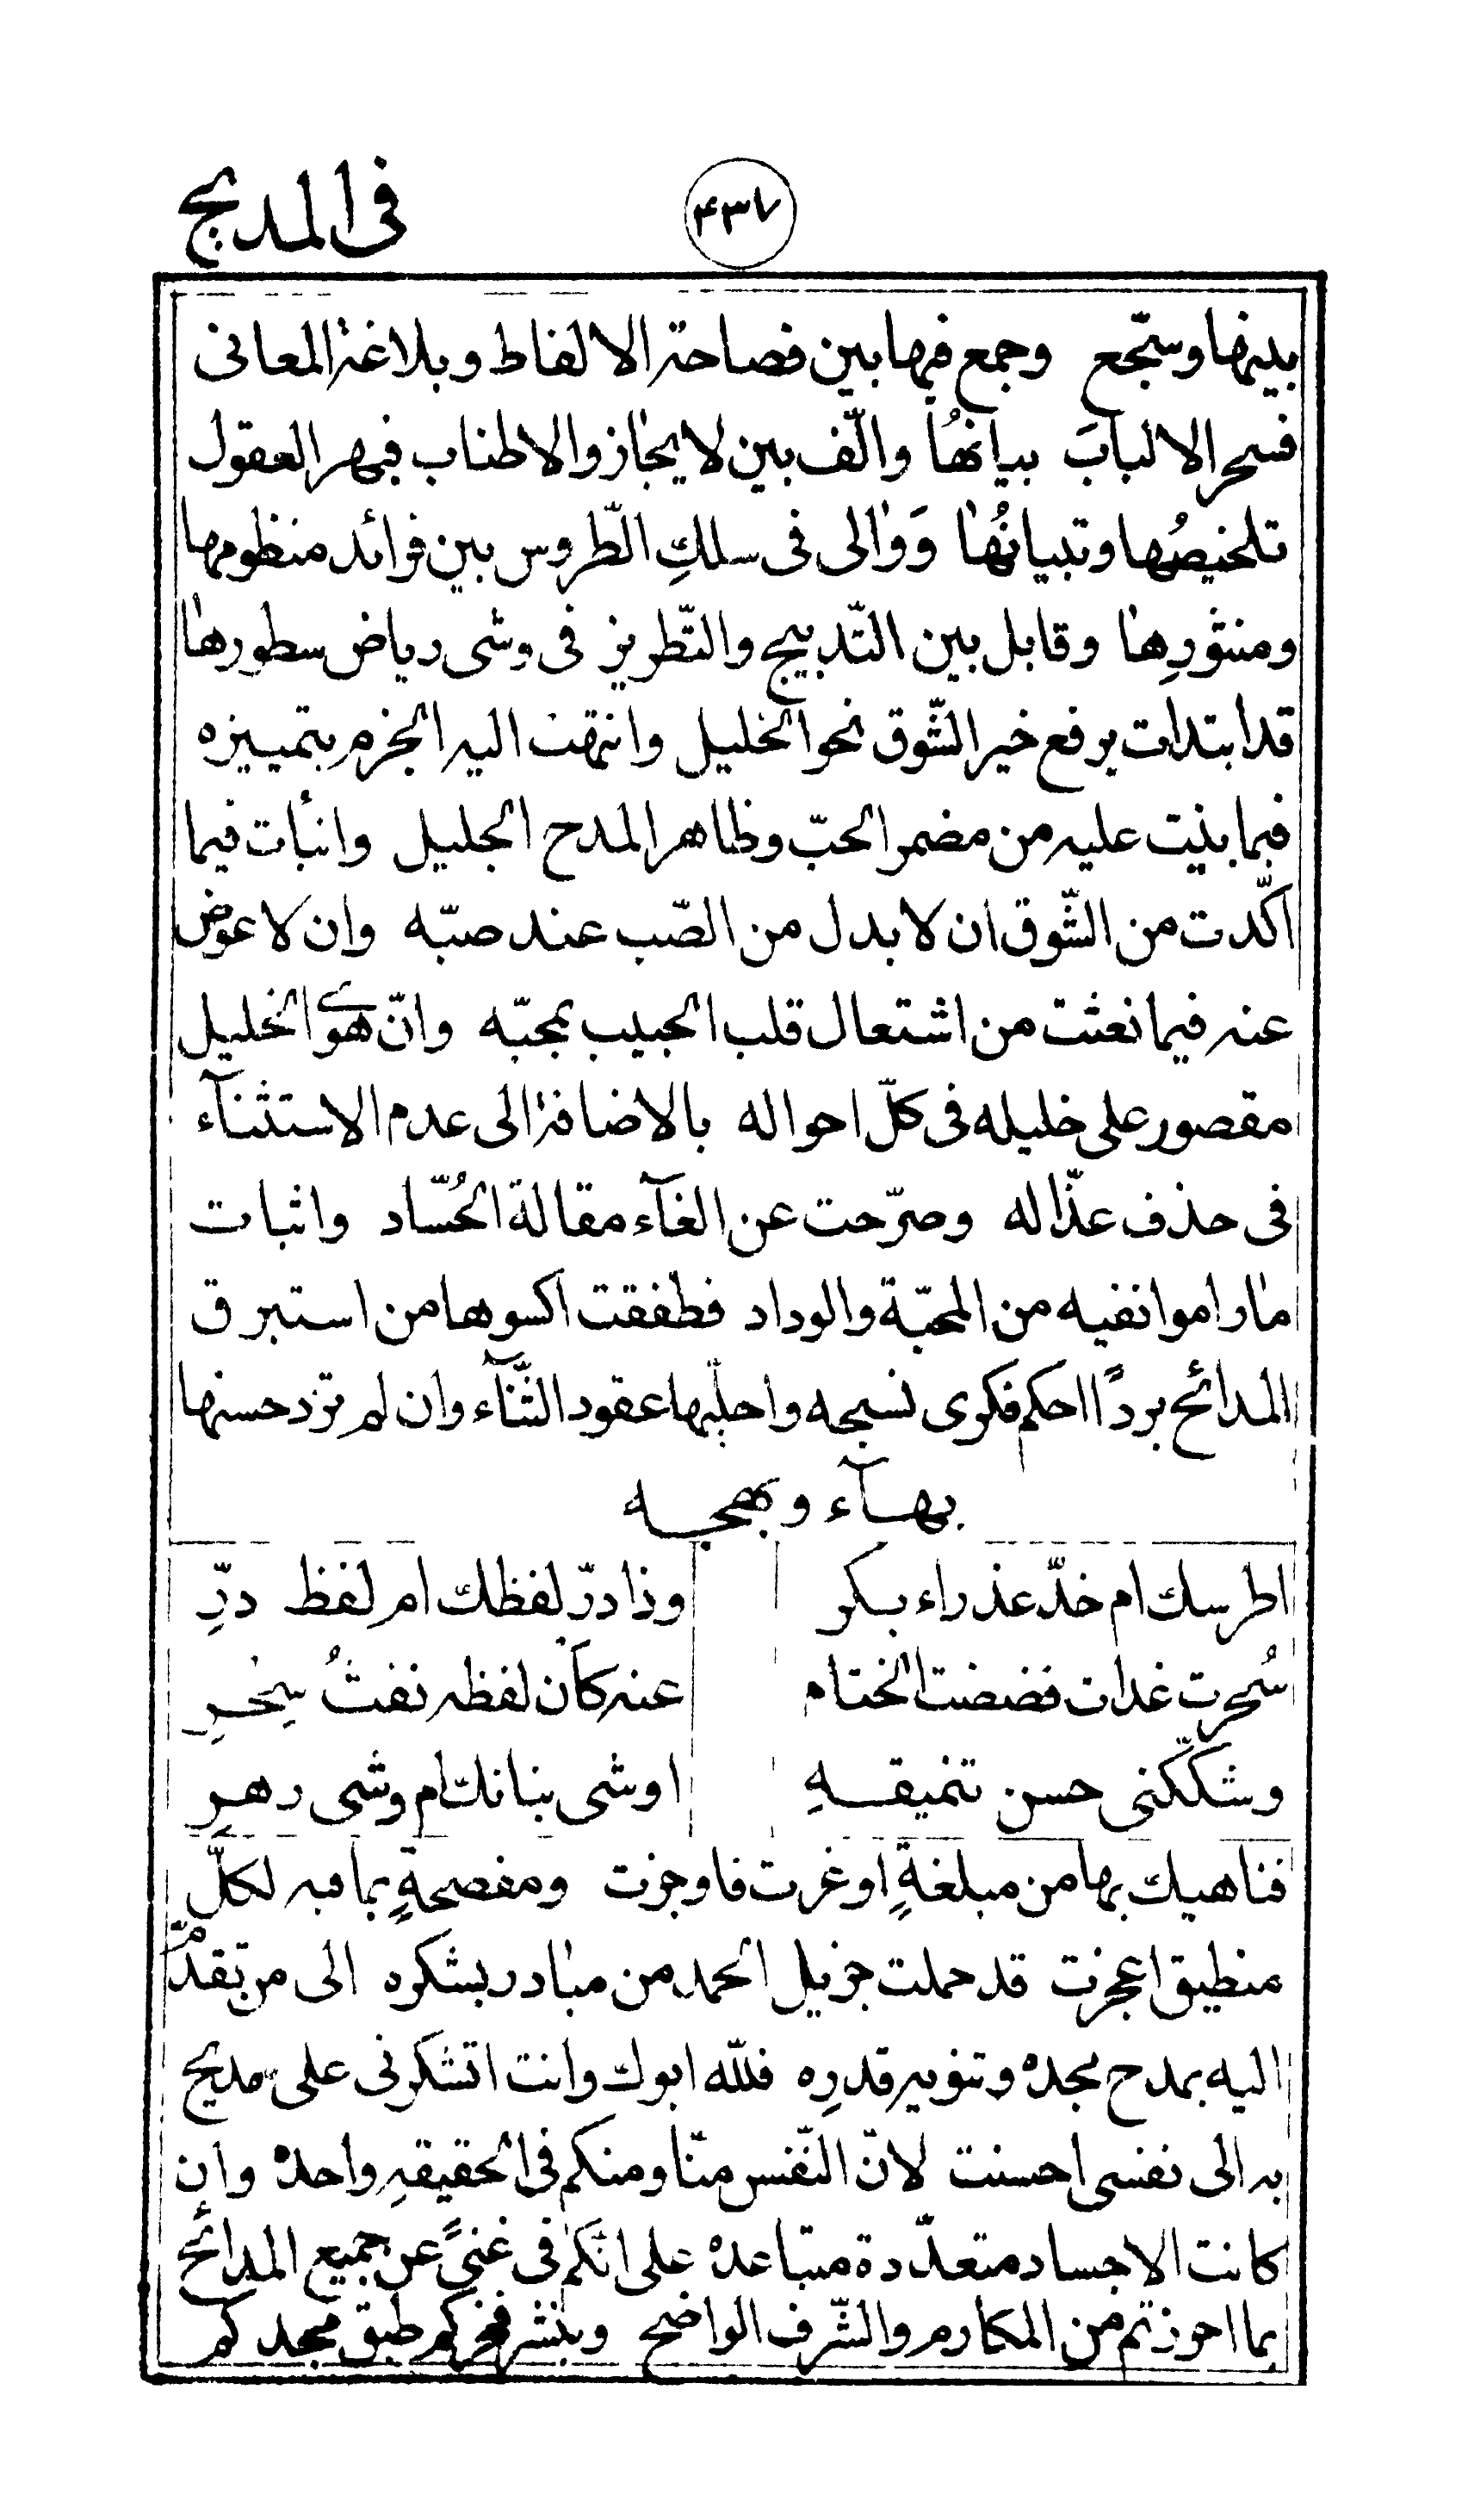 فى المديح
۴۳۷
بينها وسجّع وجمع فيها بين فصاحة الالفاظ وبلاغة المعانى
فسحر الالبابَ بيانهُا والّف بين لايجاز والاطناب فبهر العقول
تلخيصُها وتبيانهُا وَوالى فى سلكِ الطّروس بين فرائد منظومها
ومنثورِها وقابل بين التّدبيج والتّطريز فى وشى رياض سطورها
قد ابتدات برفع خبر الشّوق نحو الخليل وانتهت اليه الجزم بتمييزه
فيما بنيت عليه من مضمر الحبّ وظاهر المدح الجليل وانبأت فيما
اكّدت من الشّوق ان لا بدل من الصّب عند صبّه وان لا عوض
عنه فيما نعتت من اشتعال قلب الحبيب بمحبّه وانّ هوى الخليل
مقصور على خليله فى كلّ احواله بالاضافة الى عدم الاستثنآء
فى حذف عذّاله وصرّحت عن الغآء مقالة الحُسّاد واثبات
ما راموا نفيه من المحبّة والوداد فطفقت اكسوها من استبرق
المدائح بردًا احكم فكرى نسجه واحلّيها عقود الثّنآء وان لم تزد حسنها
بهآء وبهجه
اطرسك ام خدّ عذراء بكر
وذا درّ لفظك ام لفظ درِّ
سُحرت غداة فضضت الختام
عنه كان لفظه نفثُ سِحْرِ
وشكّكنى حسن تنميقهِ
اوشى بنانك ام وشى زهر
فناهيك بها من مبلغةٍ اوغرت فاوجزت ومفصحةٍ بما فيه لكلّ
منطيق اعجزت قد حملت جزيل الحمد من مبادر بشكره الى من تقدّم
اليه بمدح مجده وتنويه قدرِه فللّه ابوك وانت اتشكرنى على مديح
به الى نفسى احسنت لانّ النّفس منّا ومنكم فى الحقيقهِ واحده وان
كانت الاجساد متعدّدة متباعده على انّكم فى غنىً عن جميع المدائح
بما احوزتم من المكارم والشّرف الواضح وبنشر فخركم طبق مجدكم